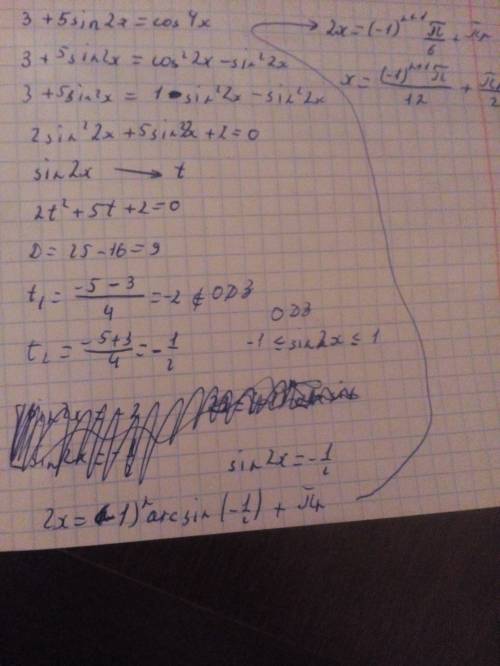 3 + 5sin2x = cos4x
3 + 5sin2x = cos²2x - sin²2x
3 + 5sin2x = 1 - sin²2x - sin²2x
2sin²2x + 5sin2x + 2 = 0
sin2x → t
2t² + 5t + 2 = 0
D = 25 - 16 = 9
t₁ = (-5 - 3)/4 = -2 ∉ ОДЗ
t₂ = (-5 + 3)/4 = -1/2
ОДЗ
-1 ≤ sin2x ≤ 1
sin2x = -1/2
2x = (-1)ⁿ arcsin(-1/2) + πn
2x = (-1)ⁿ⁺¹ π/6 + πn
x = (-1)ⁿ⁺¹π/12 + πn/2